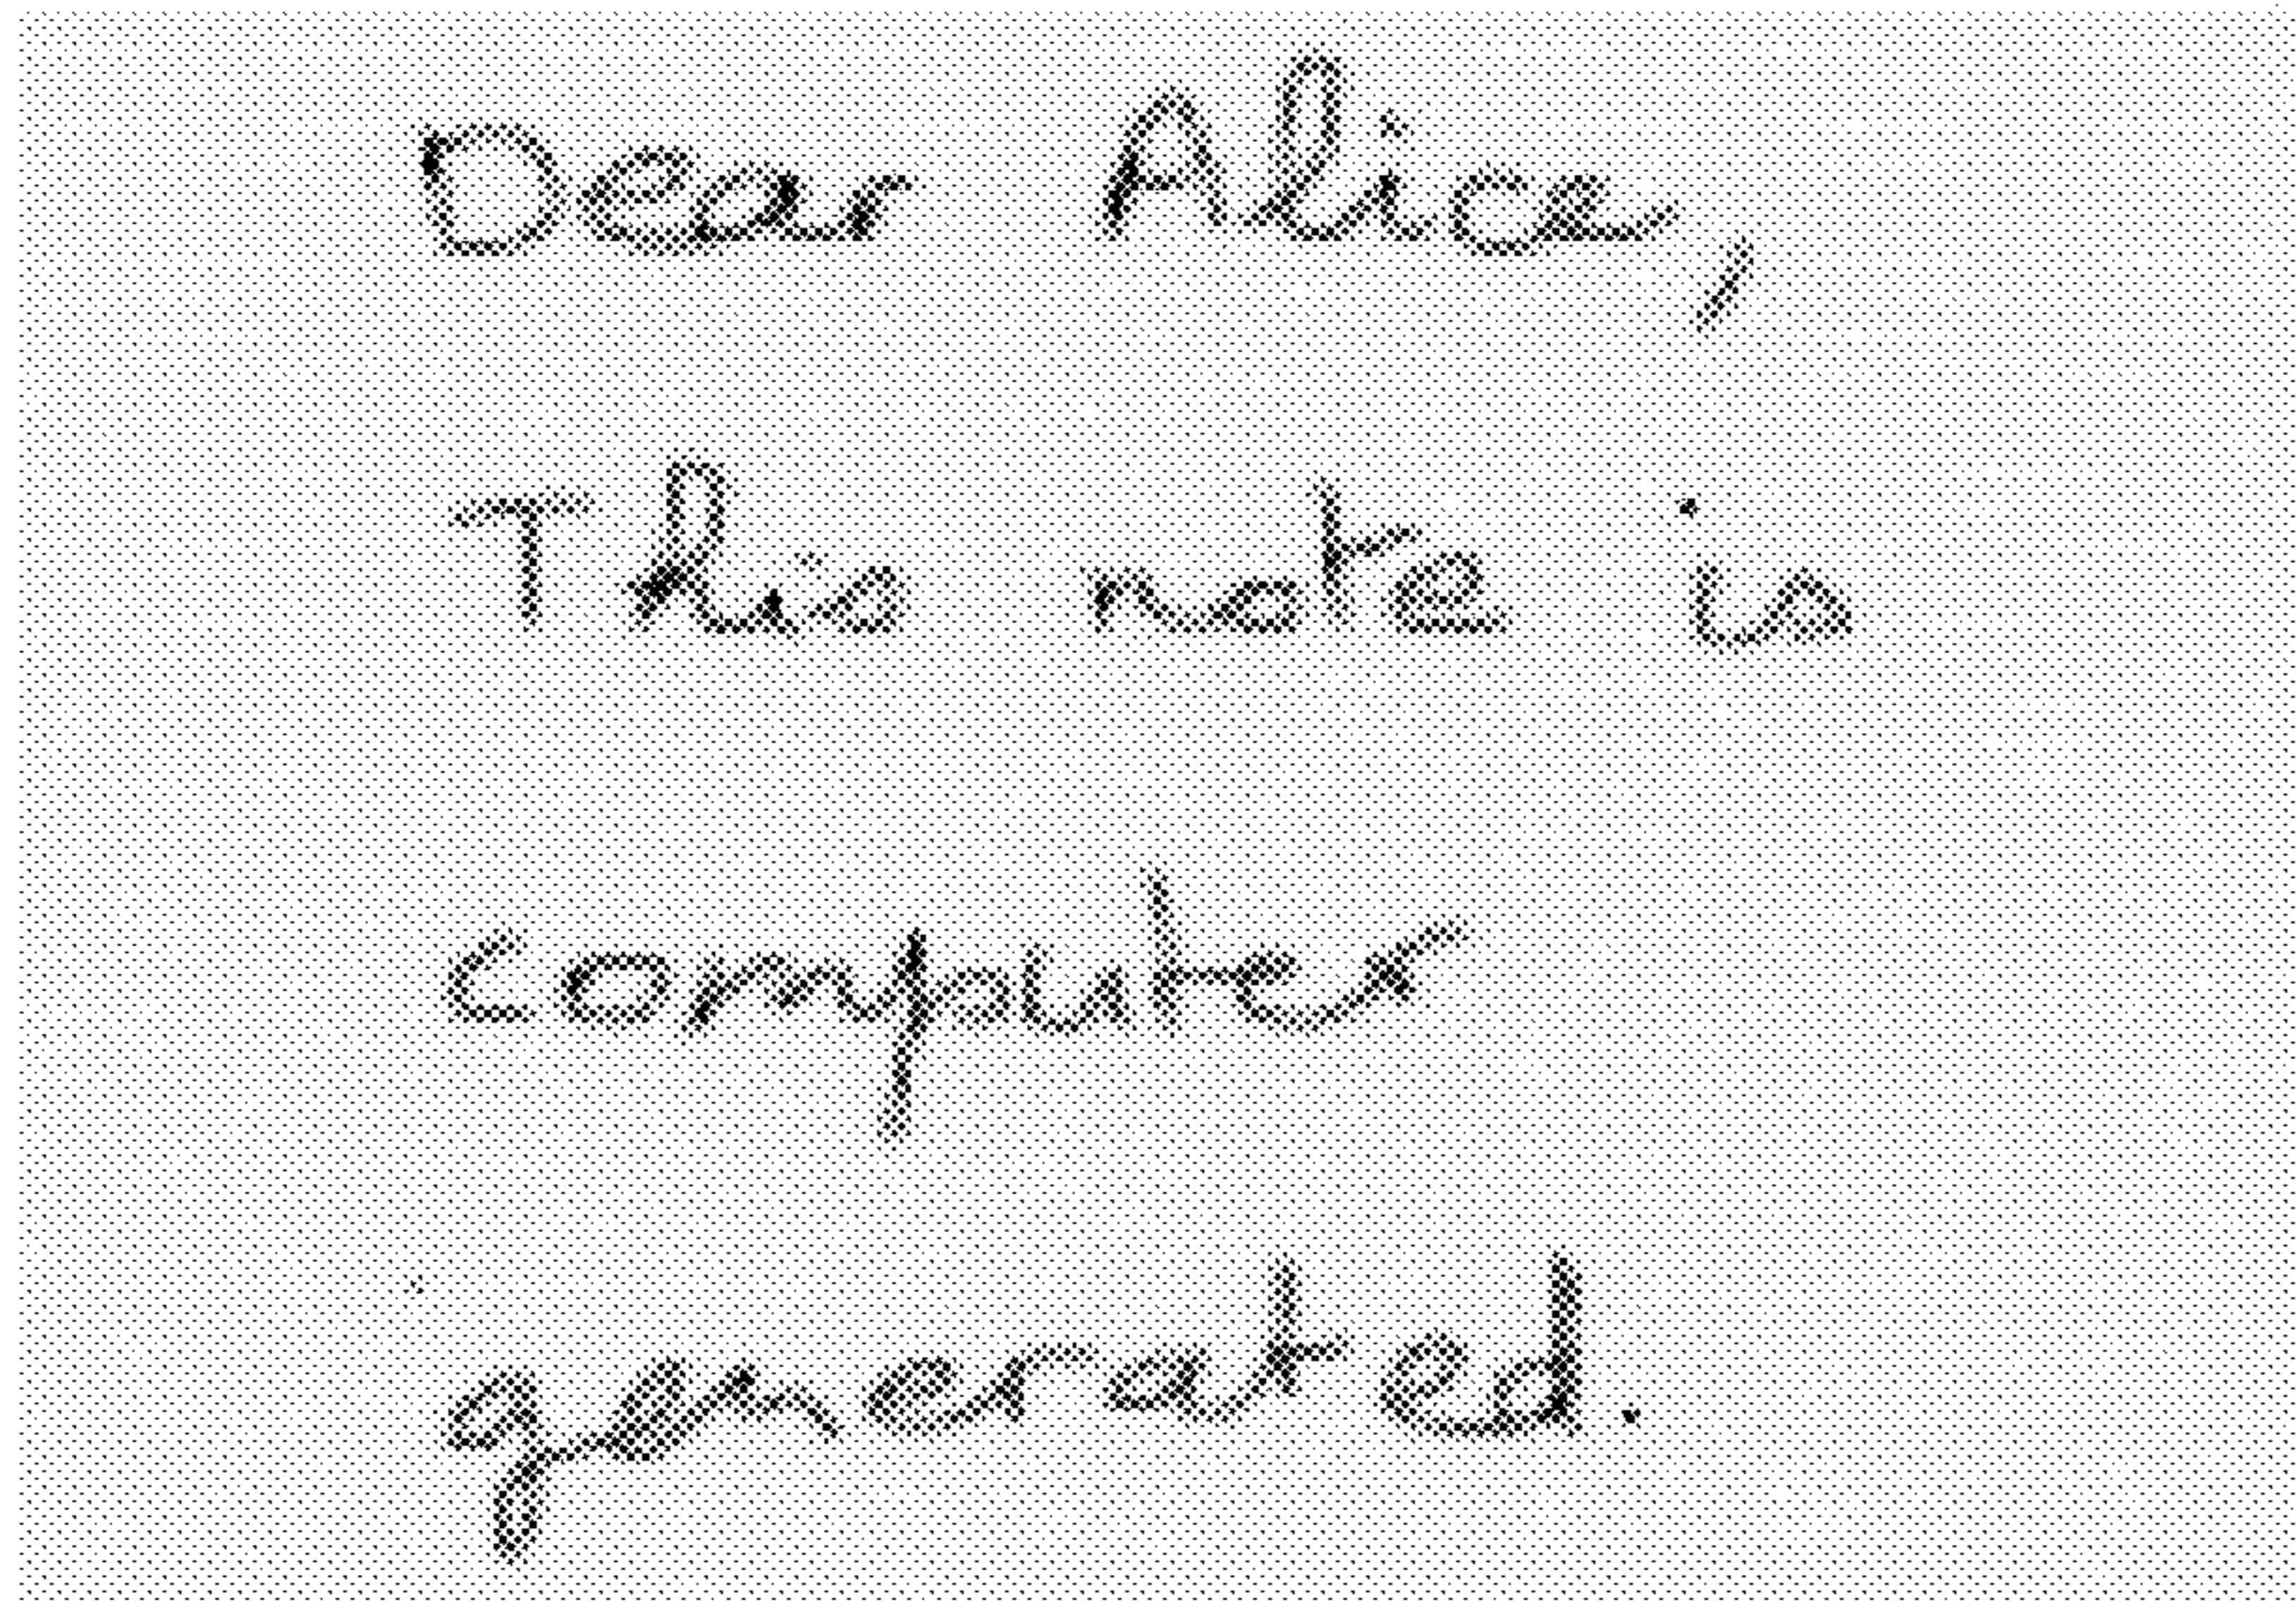 Dear Alice,
This note is
computer
generated.